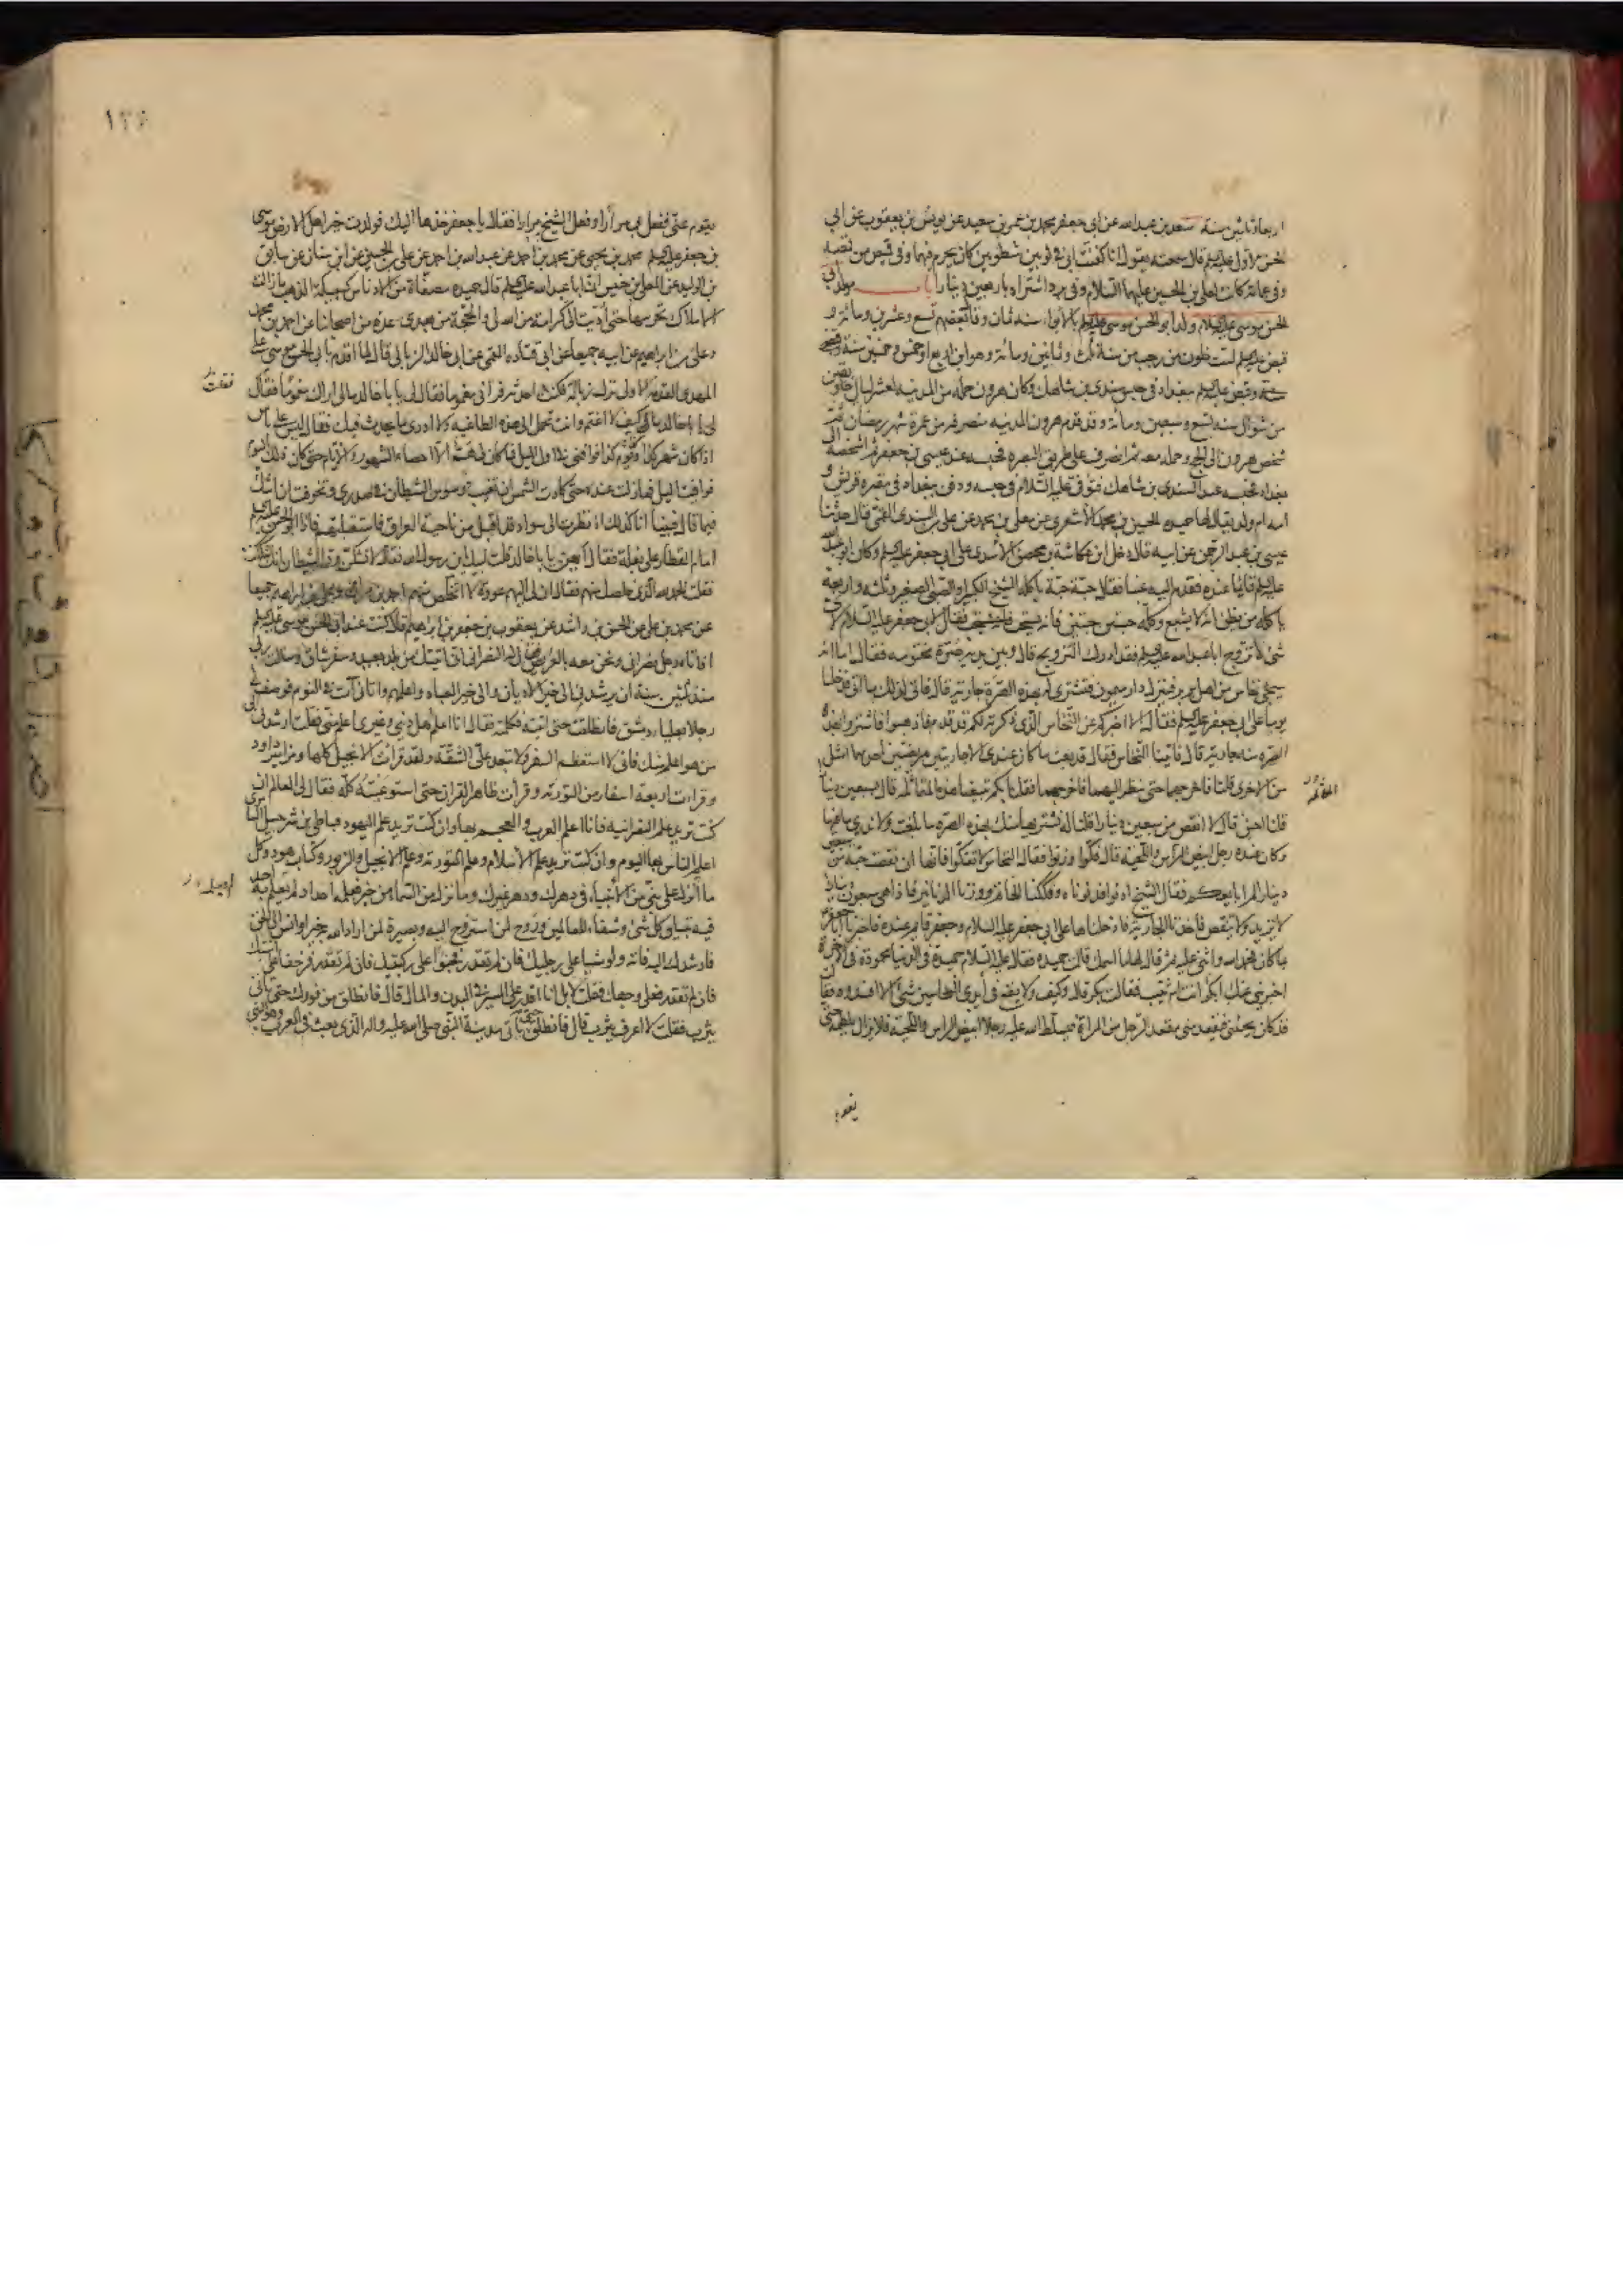 اربعا وثلثين سنة سعد بن عبد الله عن ابى جعفر محمد بن عمر بن سعيد عن يونس بن يعقوب عن ابى
الحسن الاول عليه السلم قال سمعته يقول انا كفنت ابى فى ثوبين شطويين كان يحرم فيهما وفى قميص من قمصه
وفى عمامة كانت لعلى بن الحسين عليهما السلام وفى برد اشتراه باربعين دينارا باب مولد ابى
الحسن موسى عليه السلام ولد ابو الحسن موسى عليه السلم بالابواء سنه ثمان وقال بعضهم تسع وعشرين ومائة و
قبض عليه السلم لست خلون من رجب من سنة ثلث وثمانين ومائة وهو ابن اربع او خمس وخمسين سنة وقبض
عليه السلم ببغداد فى حبس سندى بن شاهك وكان هرون حمله من المدينه لعشر ليال بقين
من شوال سنه تسع وسبعين ومائة وقد قدم هرون المدينه منصرفه من عمرة شهر رمضان ثم
شخص هرون الى الحج وحمله معه ثم انصرف على طريق البصره فحبسه عند عيسى بن جعفر ثم اشخصه الى
بغداد فحبسه عند السندى بن شاهك فتوفى عليه السلام فى حبسه ودفن ببغداد فى مقبره قريش و
امه ام ولد يقال لها حميده الحسين بن محمد الاشعرى عن معلى بن محمد عن على بن السندى القمى قال حدثنا
عيسى بن عبد الرحمن عن ابيه قال دخل ابن عكاشة بن محصن الاسدى على ابى جعفر عليه السلم وكان ابو عبد الله
عليه السلم قائما عنده فقدم اليه عنبا فقال حبة حبة ياكله الشيخ الكبير والصبى الصغير وثلثه واربعه
ياكله من يظن انه لا يشبع وكله حبتين حبتين فانه يستحب فقال لابى جعفر عليه السلام لاى
شئ لا تزوج ابا عبد الله عليه السلم فقد ادرك التزويج قال وبين يديه صرة مختومه فقال اما انه
سيجئ نخاس من اهل بربر فينزل دار ميمون فنشترى له بهذه الصرة جارية قال فاتى لذلك ما اتى فدخلنا
يوما على ابى جعفر عليه السلم فقال الا اخبركم عن النخاس الذى ذكرته لكم قد قدم فاذهبوا فاشتروا بهذه
الصره منه جارية قال فاتينا النخاس فقال قد بعت ما كان عندى الا جاريتين مريضتين احديهما امثل
من الاخرى قلنا فاخرجهما حتى ننظر اليهما فاخرجهما فقلنا بكم تبيعنا هذه المتماثله قال بسبعين دينارا
قلنا احسن قال لا انقص من سبعين دينارا قلنا له نشتريها منك بهذه الصره ما بلغت ولا ندرى ما فيها
وكان عنده رجل ابيض الراس واللحية قال فكوا وزنوا فقال النخاس لا تفكوا فانها ان نقصت حبه من سبعين
دينارا لم ابايعكم فقال الشيخ ادنوا فدنونا وفككنا الخاتم ووزنا الدنانير فاذا هى سبعون دينارا
لا تزيد ولا تنقص فاخذنا الجارية فادخلناها على ابى جعفر عليه السلام وجعفر قايم عنده فاخبرنا ابا جعفر
بما كان فحمد الله واثنى عليه ثم قال لها ما اسمك قالت حميده فقال عليه السلام حميدة فى الدنيا محمودة فى الاخرة
اخبرينى عنك ابكر انت ام ثيب فقالت بكر قال وكيف ولا يقع فى ايدى النخاسين شئ الا افسدوه فقالت
قد كان يجيئنى فيقعد منى مقعد الرجل من المراة فيسلط الله عليه رجلا ابيض الراس واللحية فلا يزال يلطمه حتى
يقوم
١٣٤
يقوم عنى ففعل بى مرارا وفعل الشيخ مرارا فقال يا جعفر خذها اليك فولدت خير اهل الارض موسى
بن جعفر عليه السلم محمد بن يحيى عن محمد بن احمد عن عبد الله بن احمد عن على بن الحسين عن ابن سنان عن سابق
بن الوليد عن المعلى بن خنيس ان ابا عبد الله عليه السلم قال حميده مصفاة من الادناس كسبيكة الذهب ما زالت
الاملاك تحرسها حتى اديت الى كرامة من الله لى والحجة من بعدى عدة من اصحابنا عن احمد بن محمد
وعلى بن ابراهيم عن ابيه جميعا عن ابى قتاده القمى عن ابى خالد الزبالى قال لما اقدم بابى الحسن موسى عليه السلم على
المهدى القدمة الاولى نزل زبالة فكنت احدثه فرانى مغموما فقال لى يا ابا خالد مالى اراك مغموما فقلت
وكيف لا اغتم وانت تحمل الى هذه الطاغيه ولا ادرى ما يحدث فيك فقال ليس على باس
اذا كان شهر كذا ويوم كذا فوافنى فى اول الليل فما كان لى هم الا احصاء الشهور والايام حتى كان ذلك اليوم
فوافيت الميل فما زلت عنده حتى كادت الشمس ان تغيب ووسوس الشيطان فى صدرى وتخوفت ان اشك
فيما قال فبينا انا كذلك اذ نظرت الى سواد قد اقبل من ناحية العراق فاستقبلتهم فاذا ابو الحسن عليه السلم
امام القطار على بغلة فقال ايهن يا ابا خالد قلت لبيك يابن رسول الله فقال لا تشكن ود الشيطان انك شككت
فقلت الحمد لله الذى خلصك منهم فقال ان لى اليهم عودة لا اتخلص منهم احمد بن مهران وعلى بن ابراهيم جميعا
عن محمد بن على عن الحسن بن راشد عن يعقوب بن جعفر بن ابراهيم قال كنت عند ابى الحسن موسى عليه السلم
اذ اتاه رجل نصرانى ونحن معه بالعريض فقال له النصرانى انى اتيتك من بلد بعيد وسفر شاق وسالت ربى
منذ ثلثين سنة ان يرشدنى الى خير الاديان والى خير العباد واعلمهم واتانى آت فى النوم فوصف لى
رجلا بعليا دمشق فانطلقت حتى اتيته فكلمته فقال انا اعلم اهل دينى وغيرى اعلم منى فقلت ارشدنى الى
من هو اعلم منك فانى لا استعظم السفر ولا تبعد على الشقة ولقد قرات الانجيل كلها ومزامير داود
وقرات اربعة اسفار من التورية وقرات ظاهر القران حتى استوعبته كله فقال لى العالم ان
كنت تريد علم النصرانيه فانا اعلم العرب والعجم بها وان كنت تريد علم اليهود فباطى بن شرحبيل السامرى
اعلم الناس بها اليوم وان كنت تريد علم الاسلام وعلم التورية وعلم الانجيل والزبور وكتاب هود وكل
ما انزل على نبى من الانبياء فى دهرك ودهر غيرك وما نزل من السماء من خبر فعلمه احد او لم يعلم به احد
فيه تبيان كل شئ وشفاء للعالمين وروح لمن استروح اليه وبصيرة لمن اراد الله به خيرا وانس الى الحق
فارشدك اليه فاته ولو مشيا على رجليك فان لم تقدر فحبوا على ركبتيك فان لم تقدر فزحفا على استك
فان لم تقدر فعلى وجهك فقلت لا بل انا اقدر على المسير فى البدن والمال قال فانطلق من فورك حتى تاتى
يثرب فقلت لا اعرف يثرب قال فانطلق حتى تاتى مدينة النبى صلى الله عليه واله الذى بعث فى العرب وهو النبى
فقلت